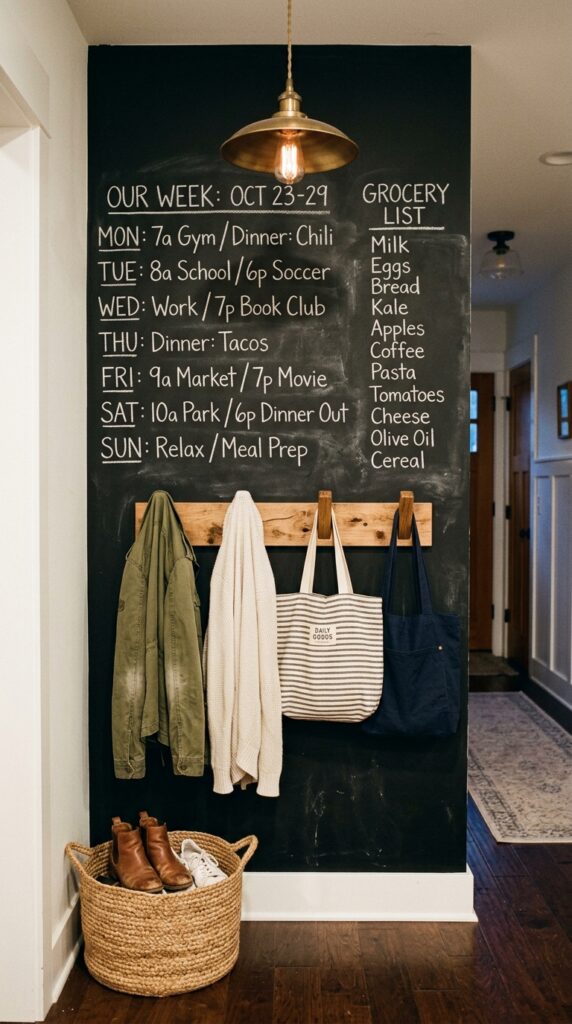 OUR WEEK: OCT 23-29
MON: 7a Gym / Dinner: Chili
TUE: 8a School / 6p Soccer
WED: Work / 7p Book Club
THU: Dinner: Tacos
FRI: 9a Market / 7p Movie
SAT: 10a Park / 6p Dinner Out
SUN: Relax / Meal Prep
GROCERY
LIST
Milk
Eggs
Bread
Kale
Apples
Coffee
Pasta
Tomatoes
Cheese
Olive Oil
Cereal
DAILY
GOODS